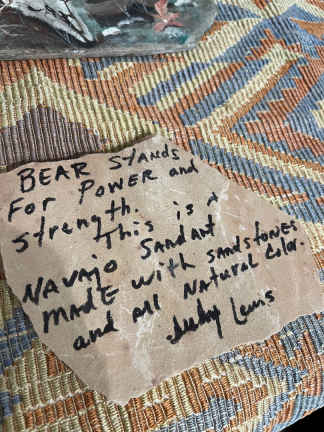 BEAR STANDS
FOR POWER and
Strength.
This is a
NAVAJO SANDART
MADE with SANDSTONES
and All NATURAL Color.
Lewis